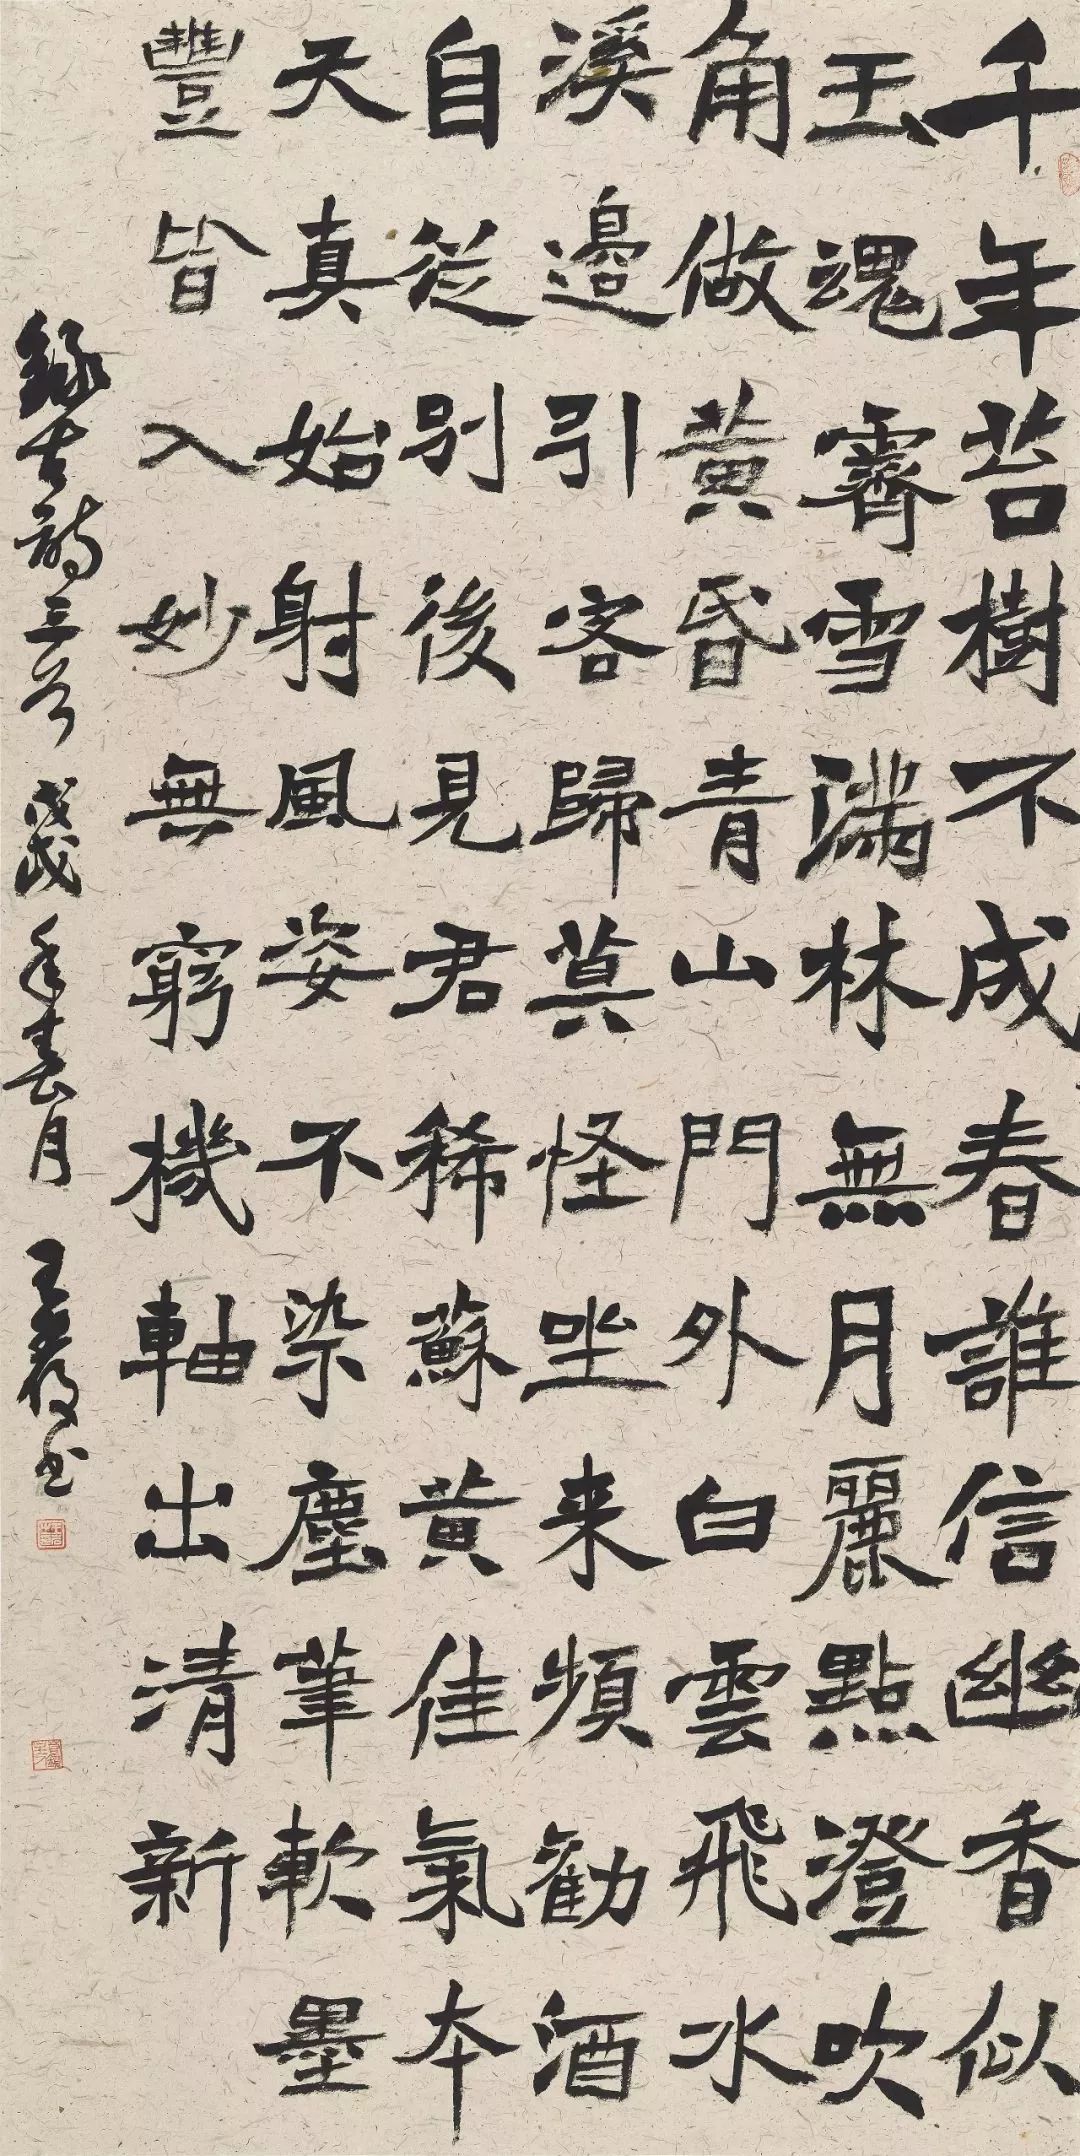 千年苔樹不成春誰信幽香似
玉魂霽雪滿林無月麗點澄吹
角做黄昏青山門外白雲飛水
溪邊引客歸莫怪坐来頻勸酒
自從別後見君稀蘇黄佳氣本
天真始射風姿不染塵筆軟墨
豐皆入妙無窮機軸出清新
録古詩三首 戊戌年春月 王书